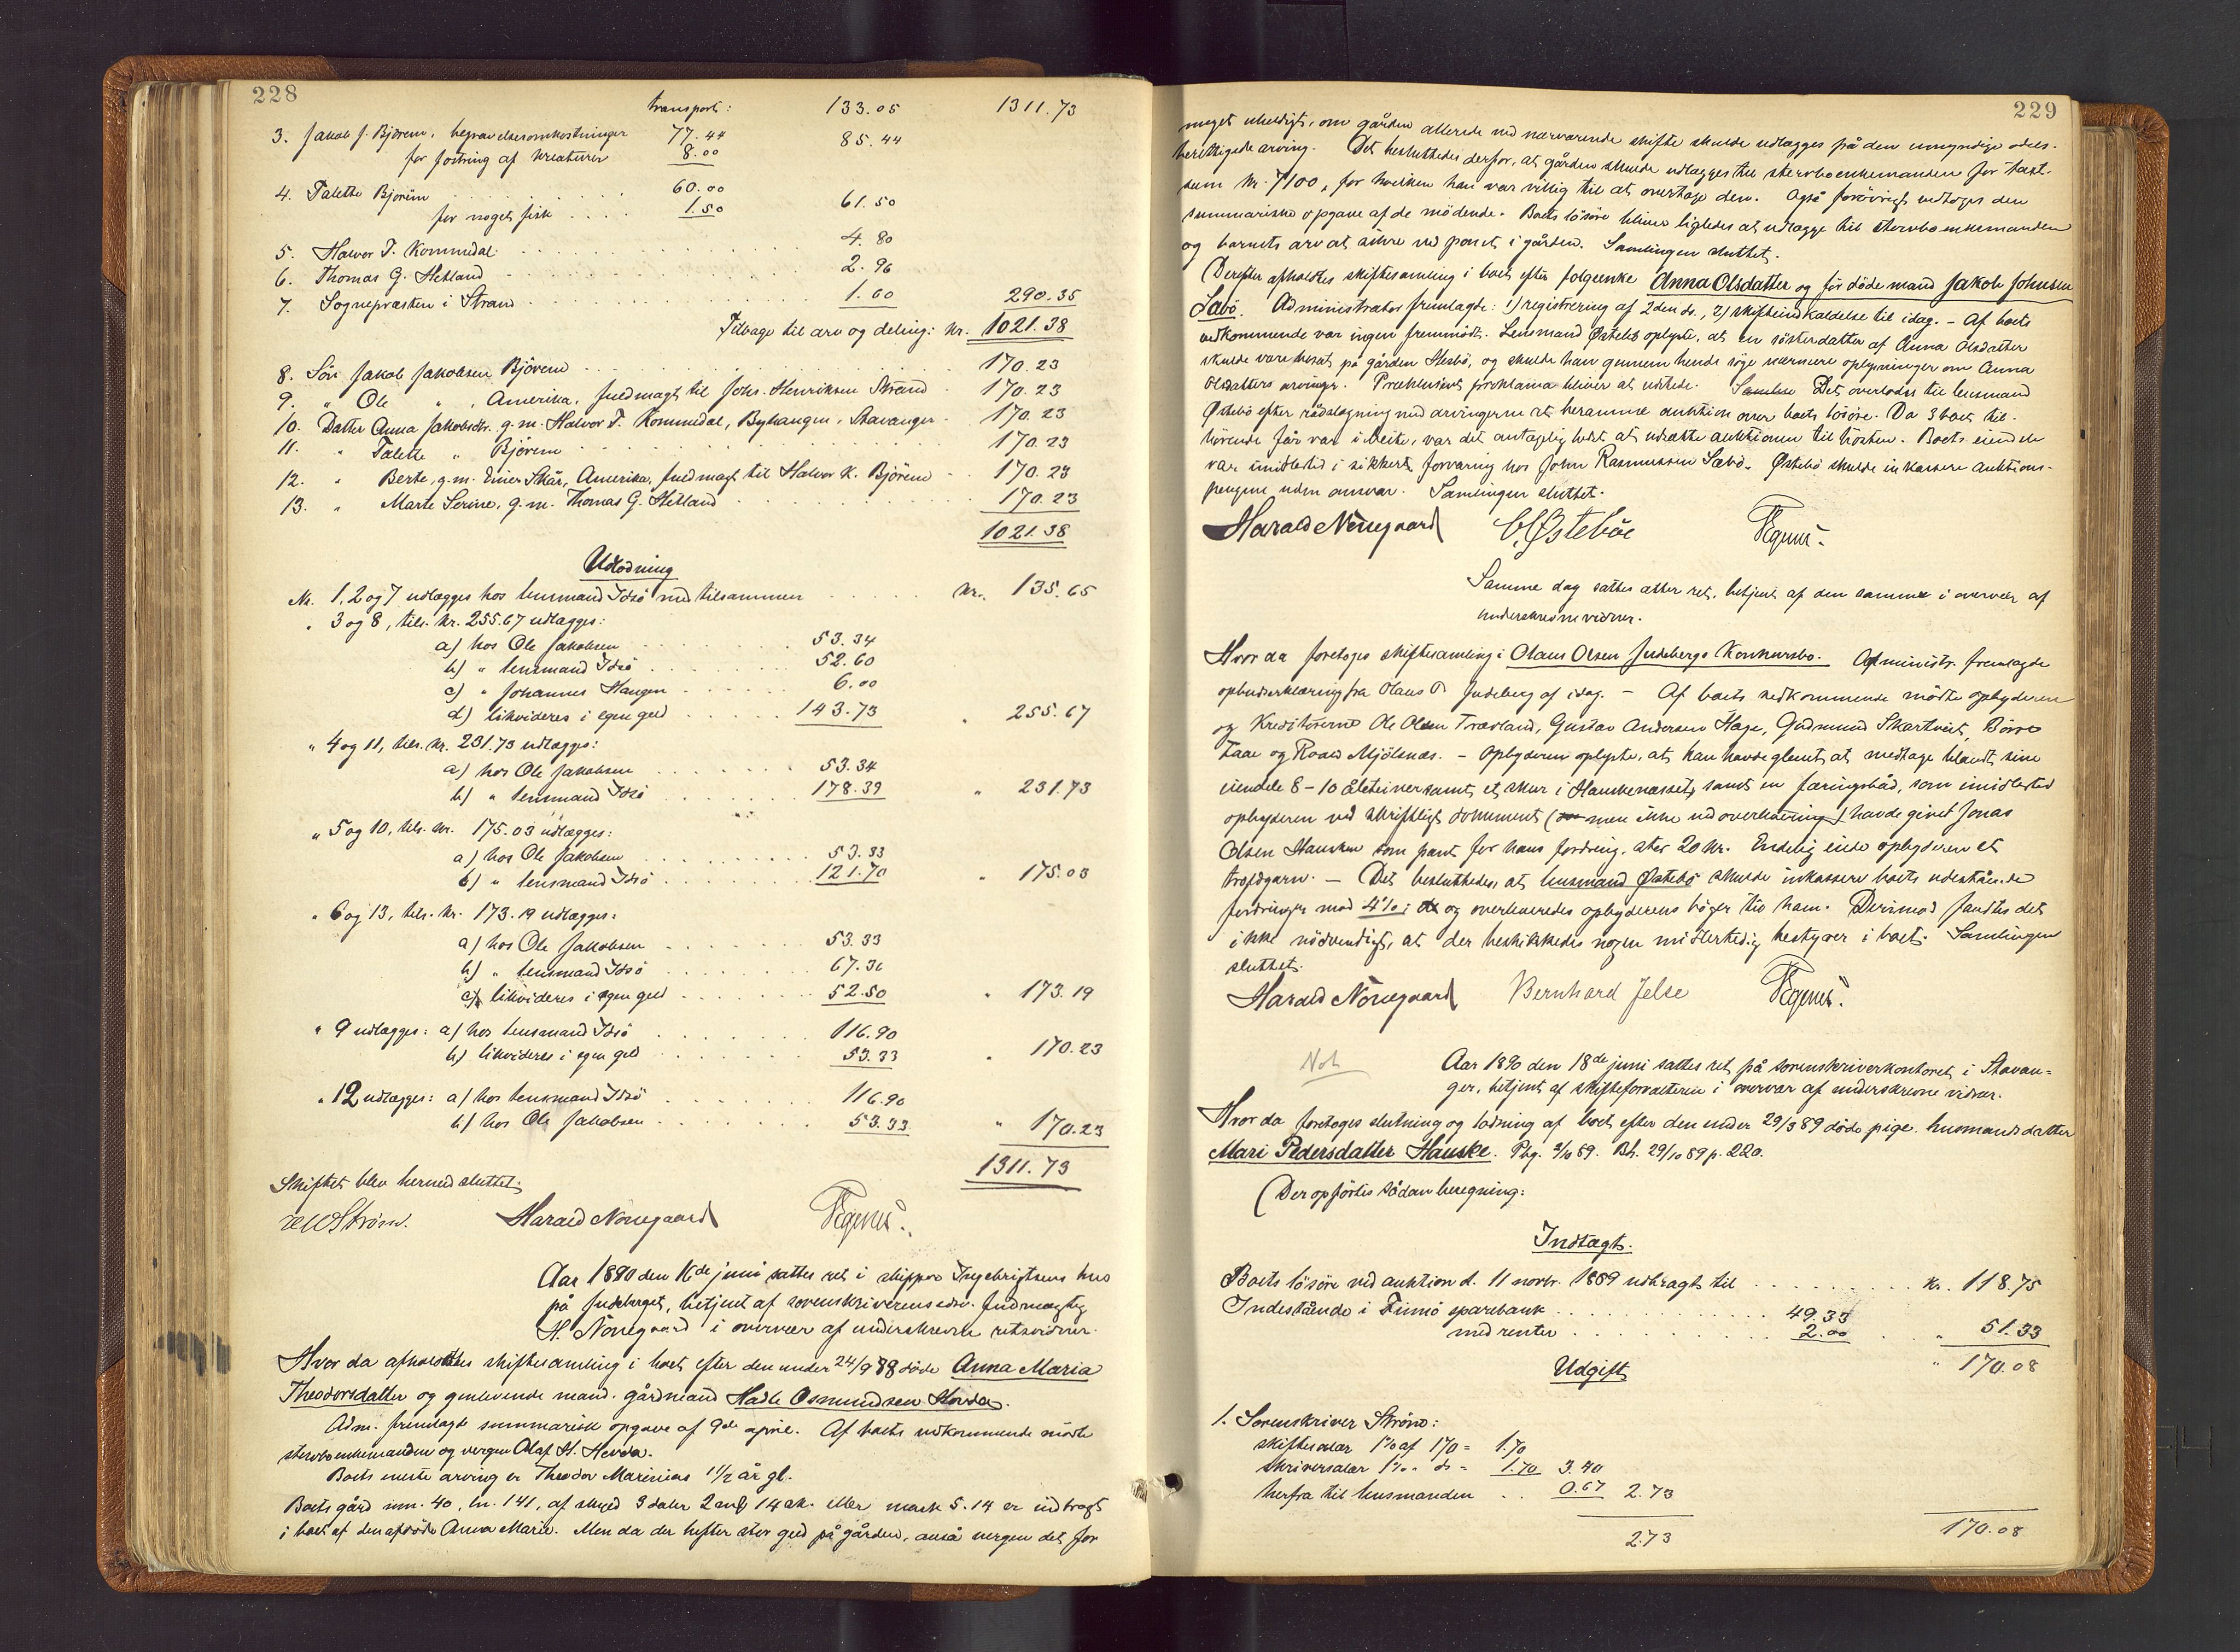 228
transport: 133.05 1311.73
3. Jakob J. Bjørem, begravelsesomkostninger 77.44
for fostring af kreaturer 8.00 85.44
4. Talette Bjørem 60.00
for noget fisk 1.50 61.50
5. Halvor T. Kommedal 4.80
6. Thomas G. Hetland 2.96
7. Sognepræsten i Strand 1.60 290.35
Tilbage til arv og deling: kr. 1021.38
8. Søn Jakob Jakobsen Bjørem 170.23
9. " Ole " , Amerika, fuldmagt til Johs. Henriksen Strand 170.23
10. Datter Anna Jakobsdtr. g.m. Halvor T. Kommedal, Byhaugen, Stavanger 170.23
11. " Talette " Bjørem 170.23
12. " Berte, g.m. Einer Skår, Amerika, fuldmagt til Halvor K. Bjørem 170.23
13. " Marte Serine, g.m. Thomas G. Hetland 170.23
1021.38
Udlodning
Nr. 1, 2 og 7 udlægges hos lensmand Idsö med tilsammen kr. 135.65
" 3 og 8, tils. kr. 255.67 udlægges:
a) hos Ole Jakobsen 53.34
b) " lensmand Idsö 52.60
c) " Johannes Haugen 6.00
d) likvideres i egen gæld 143.73 " 255.67
" 4 og 11, tils. kr. 231.73 udlægges:
a) hos Ole Jakobsen 53.34
b) " lensmand Idsö 178.39 " 231.73
" 5 og 10, tils. kr. 175.03 udlægges:
a) hos Ole Jakobsen 53.33
b) " lensmand Idsö 121.70 " 175.03
" 6 og 13, tils. kr. 173.19 udlægges:
a) hos Ole Jakobsen 53.33
b) " lensmand Idsö 67.36
c) likvideres i egen gæld 52.50 " 173.19
" 9 udlægges: a) hos lensmand Idsö 116.90
b) likvideres i egen gæld 53.33 " 170.23
" 12 udlægges: a) hos lensmand Idsö 116.90
b) hos Ole Jakobsen 53.33 " 170.23
1311.73
Skiftet blev hermed sluttet.
Strøm. Harald Nørregaard
Aar 1890 den 16de juni sattes ret i skipper Ingebrigtsens hus
på Judeberget, betjent af sorenskriverens edsv. fuldmægtig
H. Nørregaard i overvær af underskrevne retsvidner.
Hvor da afholdtes skiftesamling i boet efter den under 24/9 88 døde Anna Maria
Theodorsdatter og gjenlevende mand, gårdmand Hadle Osmundsen Hovda.
Adm. fremlagde summarisk opgave af 9de april. Af boets vedkommende mødte
stervboenkemanden og vergen Olaf H. Hovda.
Boets eneste arving er Theodor Marinius 1 1/2 år gl.
Boets gård mn. 40, ln. 141, af skyld 3 daler 2 ort 14 sk. eller mark 5.14 er indbragt
i boet af den afdøde Anna Marie. Men da der hefter stor gæld på gården, anså vergen det for
229
meget uheldigt, om gården allerede ved nærværende skifte skulde udlægges på den umyndige odels-
berettigede arving. Det besluttedes derfor, at gården skulde udlægges til stervboenkemanden for takst-
sum kr. 7100, for hvilken han var villig til at overtage den. Også forøvrigt vedtoges den
summariske opgave af de mødende. Boets løsøre bliver ligeledes at udlægge til stervboenkemanden
og barnets arv at sikre ved pant i gården. Samlingen sluttet.
Derefter afholdtes skiftesamling i boet efter folgeenke Anna Olsdatter og før døde mand Jakob Johnsen
Sæbö. Administrator fremlagde: 1) registrering af 2den ds., 2) skifteindkaldelse til idag. – Af boets
vedkommende var ingen fremmødt. Lensmand Østebö oplyste, at en søsterdatter af Anna Olsdatter
skulde være bosat på gården Hesbö, og skulde han gjennem hende søge nærmere oplysninger om Anna
Olsdatters arvinger. Præklusivt proklama bliver at udstede. Samlin Det overlodes til lensmand
Østebö efter rådslagning med arvingerne at beramme auktion over boets løsøre. Da 3 boet til-
hørende får var i beite, var det antagelig bedst at udsætte auktionen til høsten. Boets eiendele
var imidlertid i sikkert forvaring hos John Rasmussen Sæbö. Østebö skulde inkassere auktions-
pengene uden ansvar. Samlingen sluttet.
Harald Nørregaard Østeböe
Samme dag sattes atter ret, betjent af den samme i overvær af
underskrevne vidner.
Hvor da foretoges skiftesamling i Olaus Olsen Judebergs Konkursbo. Administr. fremlagde
opbudserklæring fra Olaus O. Judeberg af idag. – Af boets vedkommende mødte opbyderen
og kreditorerne Ole Olsen Trædland, Gustav Andersen Hage, Gudmund Skartveit, Börre
Laae og Roald Mjölsnæs. – Opbyderen oplyste, at han havde glemt at medtage blandt sine
eiendele 8–10 åleteiner samt et skur i Hauskenæsset, samt en færingsbåd, som imidlertid
opbyderen ved skriftligt dokument (men ikke ved overlevering) havde givet Jonas
Olsen Hausken som pant for hans fordring, stor 20 kr. Endelig eiede opbyderen et
garn. – Det besluttedes, at lensmand Østebö skulde inkassere boets udestående
fordringer mod 4%; og overleveredes opbyderens bøger til ham. Derimod fandtes det
ikke nødvendigt, at der beskikkedes nogen midlertidig bestyrer i boet. Samlingen
sluttet.
Harald Nørregaard Bernhard Jelse
Not
Aar 1890 den 18de juni sattes ret på sorenskriverkontoret i Stavan-
ger, betjent af skifteforvalteren i overvær af underskrevne vidner.
Hvor da foretoges slutning og lodning af boet efter den under 29/3 89 døde pige husmandsdatter
Mari Pedersdatter Hauske. Pbg. 2/10 89. Bh. 29/10 89 p. 220.
Der opførtes sådan beregning:
Indtægt.
Boets løsøre ved auktion d. 11 novbr. 1889 udbragt til kr. 118.75
Indestående i Finnö sparebank 49.33
med renter 2.00 " 51.33
" 170.08
Udgift
1. Sorenskriver Strøm:
skiftesalær 1% af 170 = 1.70
skriversalær 1% " ds = 1.70 3.40
herfra til lensmanden 0.67 2.73
2.73 170.08